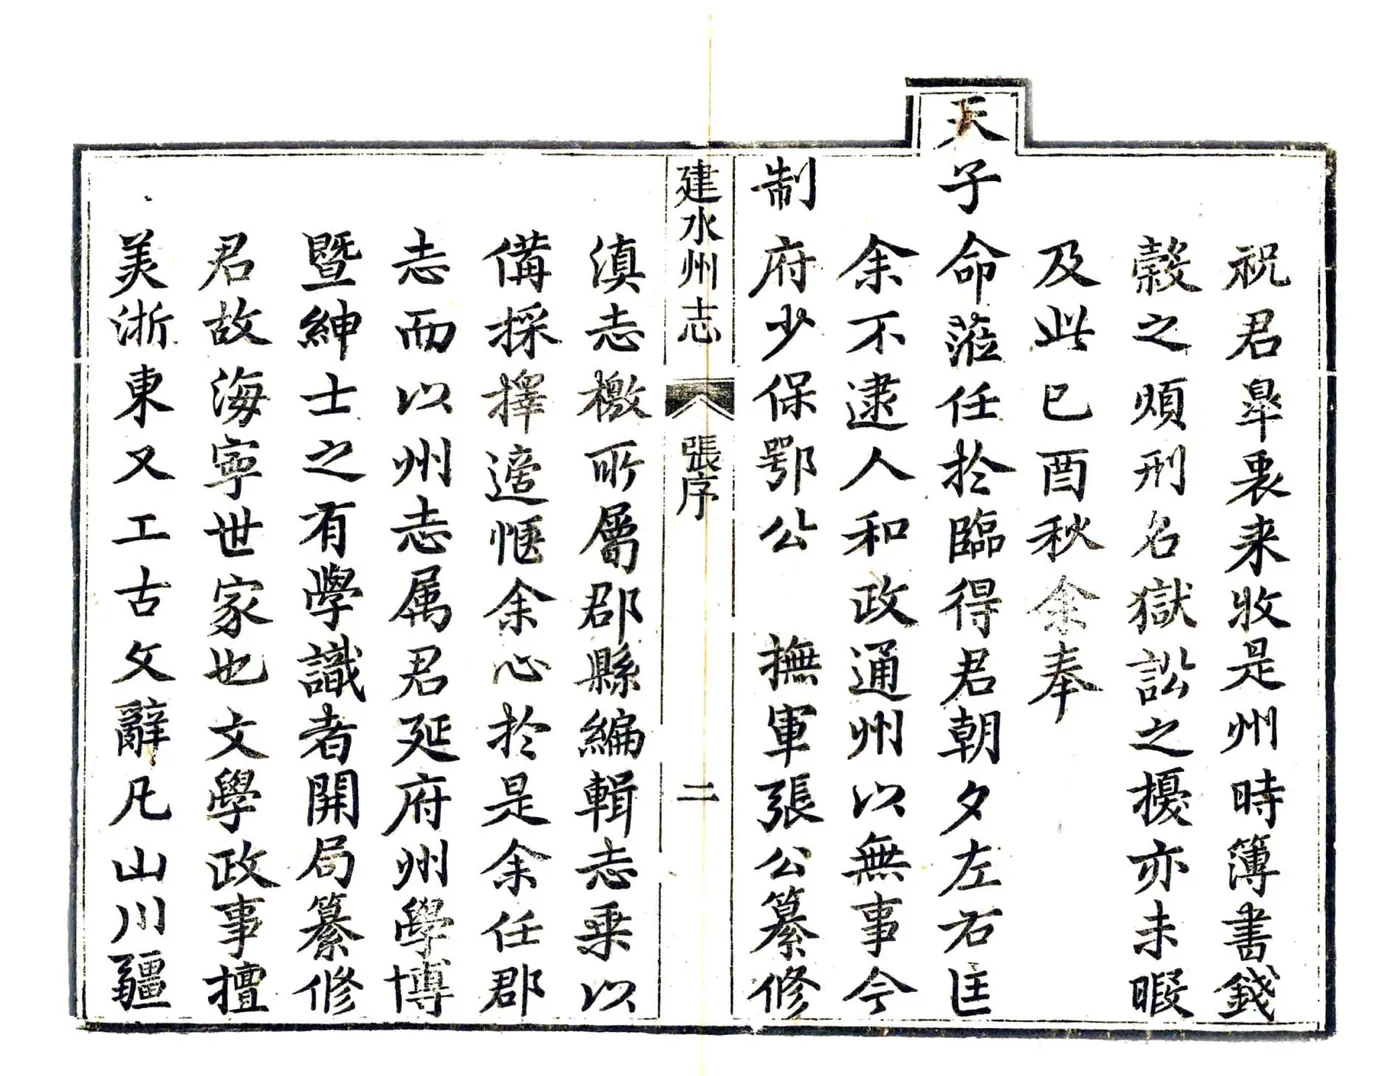 祝君臯裏来收是州時簿書錢
穀之煩刑名獄訟之擾亦未暇
及此已酉秋余奉
天子命蒞任於臨得君朝夕左右匡
余不逮人和政通州以無事今
制府少保鄂公 撫軍張公纂修
建水州志 張序 二
滇志檄所屬郡縣編輯志乗以
備採擇適愜余心於是余任郡
志而以州志属君延府州學博
暨紳士之有學識者開局纂修
君故海寧世家也文學政事擅
美浙東又工古文辭凡山川疆